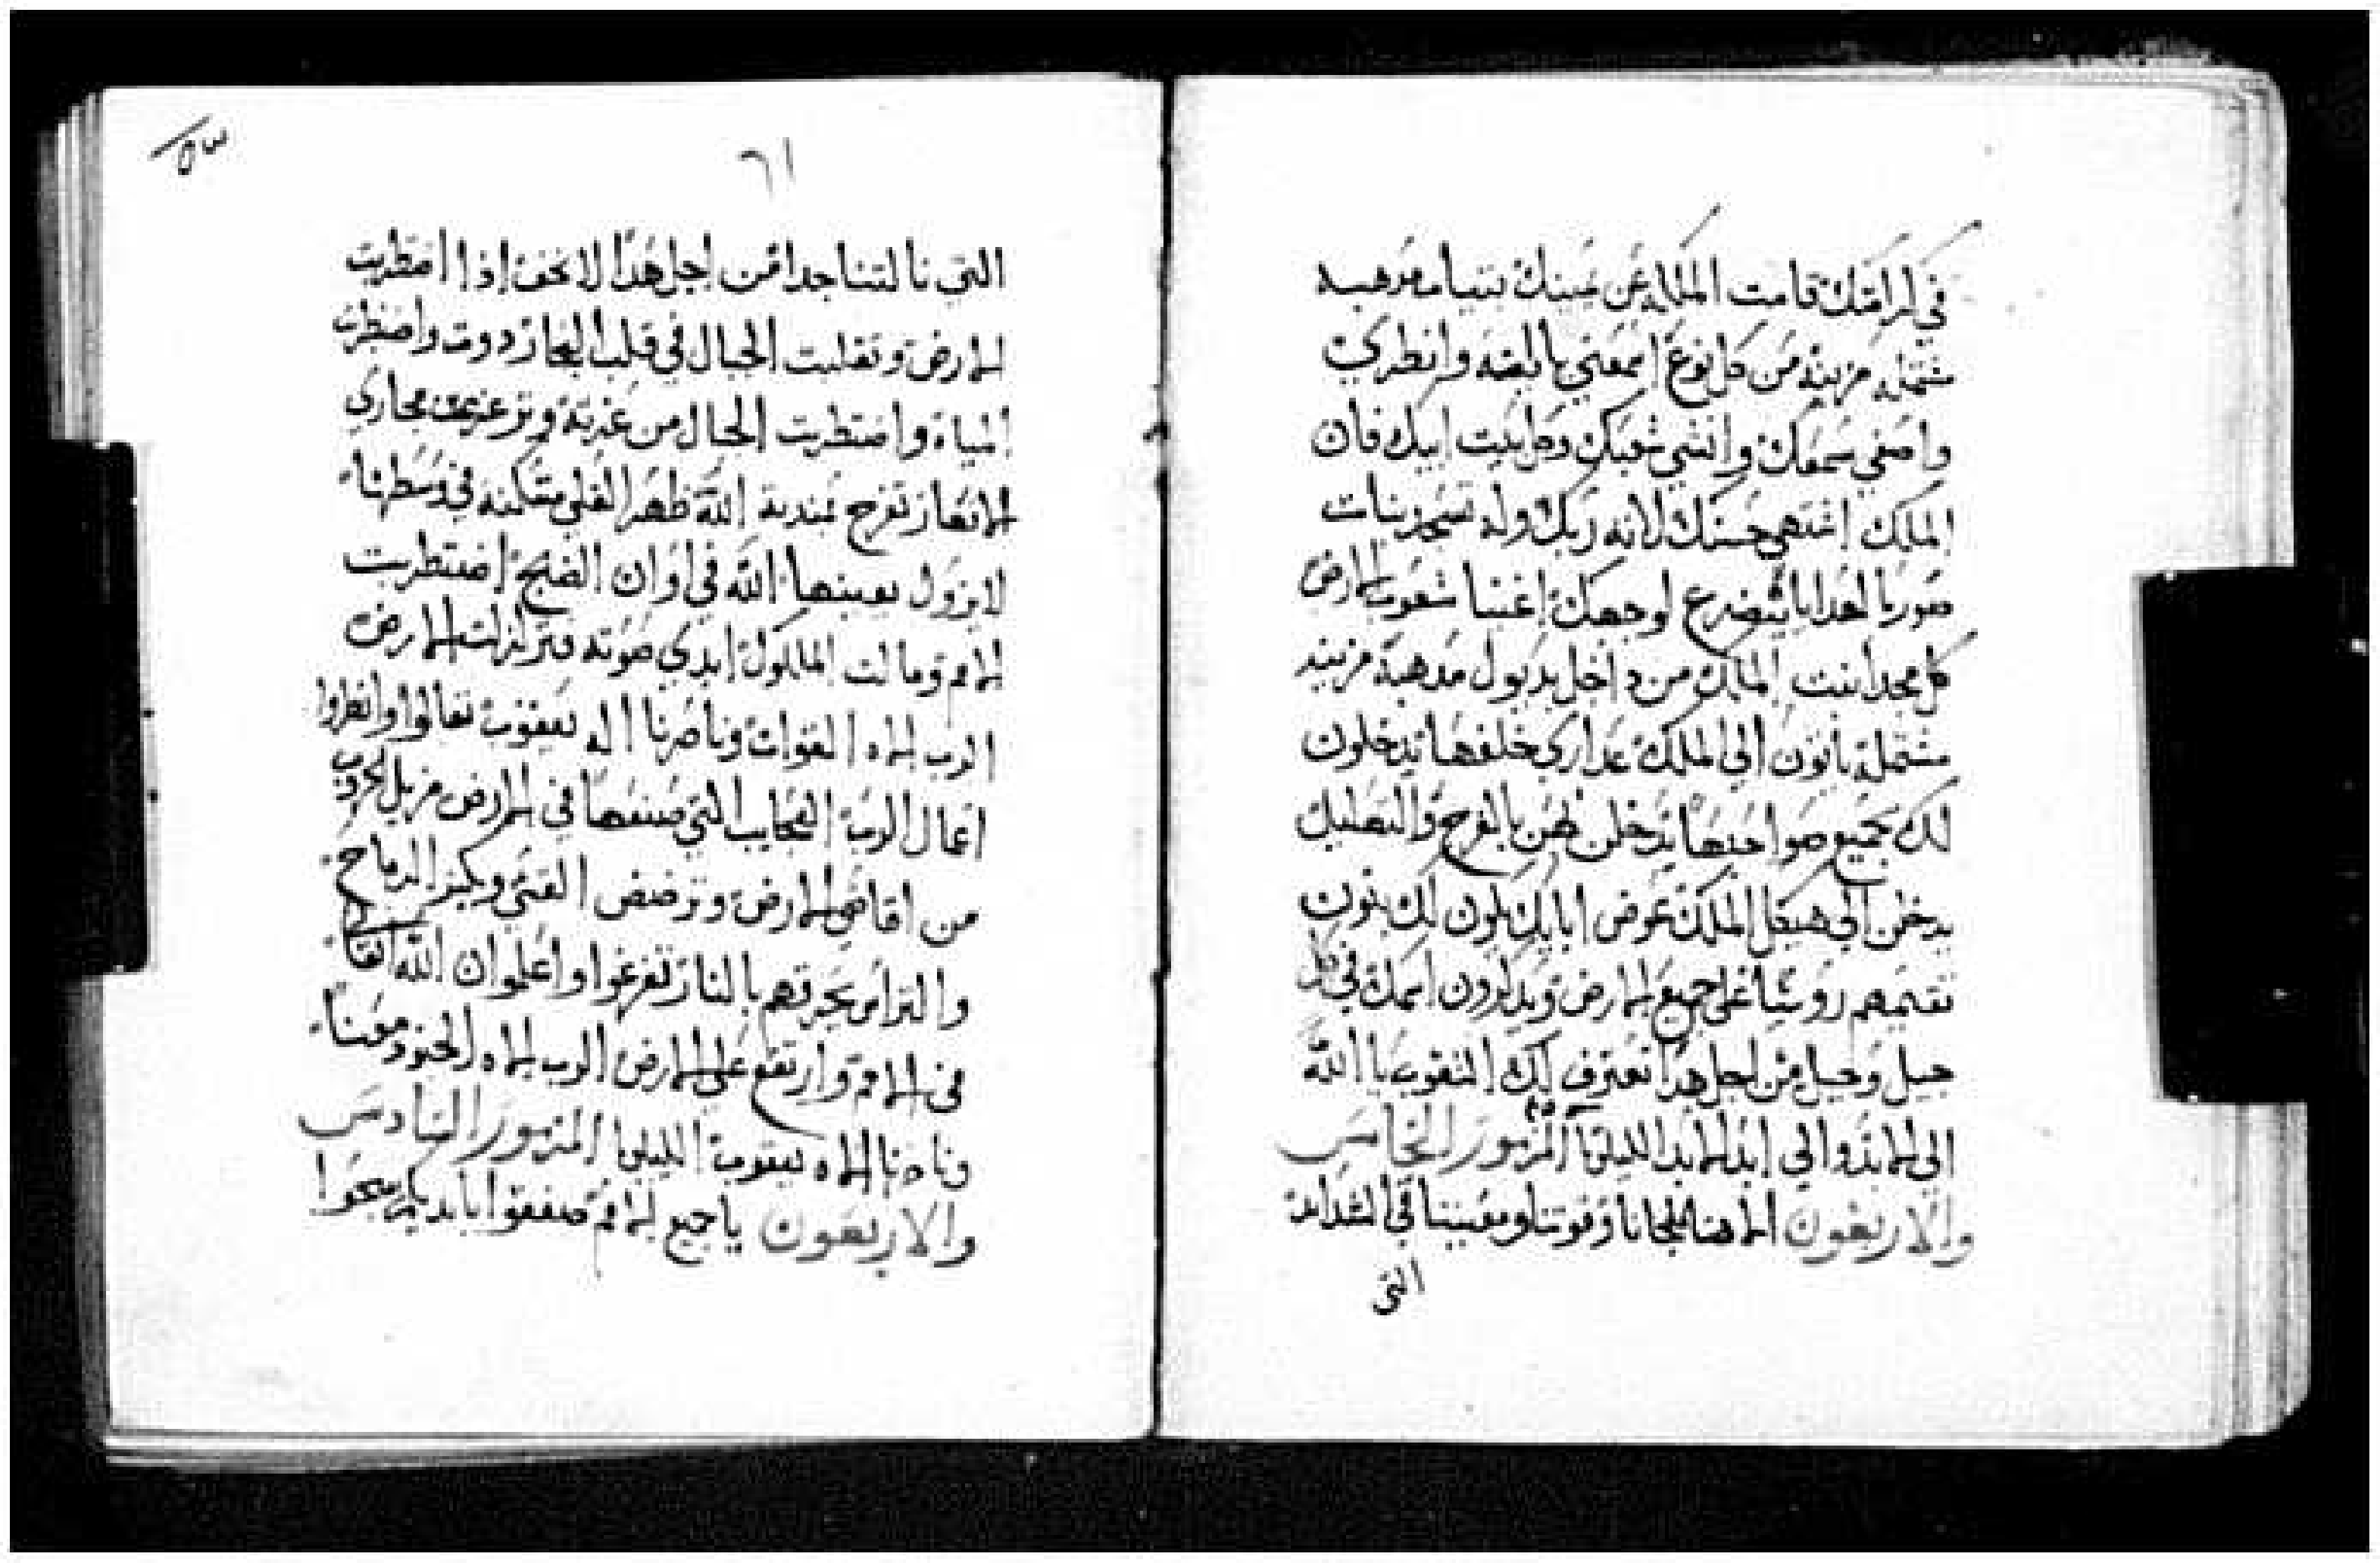 في كرامتك قامت الملكه عن يمينك بتياب مدهبه
مشتمله مزينه من كل نوع اسمعي يا ابنه وانظري
واصغي سمعك وانسي شعبك وكل بيت ابيك فان
الملك اشتهي حسنك لانه ربك وله تسجد بنات
صور با لهدايا يتضرع لوجهك اغنيا شعوب الارض
كل مجد ابنت الملك من داخل بديول مدهبة مزينه
مشتملة ياتون الي الملك عداري خلفها يدخلون
لك جميع صواحبها يدخلن لهن بالفرح والتهليل
يدخلن الي هيكل الملك عوض ابايك يكون لك بنون
تقيمهم روسًا علي جميع الارض ويدكرون اسمك في كل
جيل وجيل من اجل هدا تعترف لك الشعوب يا الله
الي الابد والي ابد الابد الليلويا المزمور الخامس
والاربعون الاهنا ملجانا وقوتنا ومعيننا في الشدايد
التي
٦١
التي نالتنا جدا من اجل هدا لا نخف اذا اضطربت
الارض وتقلبت الجبال في قلب البحار دوت واضطربت
المياه واضتطربت الجبال من عزته وتزعزعت مجاري
الانهار تفرح مدينة الله طهر العلي مسكنه في وسطها
لا يزول يعينها الله في اوان الصبح اضتطربت
الامم ومالت الملوك ابدي صوته فتزلزلت الارض
الرب اله القوات وناصرنا اله يعقوب تعالوا وانظروا
اعمال الرب العجايب التي صنعها في الارض مزيل الحروب
من اقاصي الارض وترضض القسي ويكسر الرماح
والتراس يحرقهم بالنار تفرغوا واعلموا ان الله
في الامم وارتفع علي الارض الرب اله الجنود معنا
وناصرنا اله يعقوب الليلويا المزمور السادس
والاربعون يا جميع الامم صفقوا بايديكم سبحوا